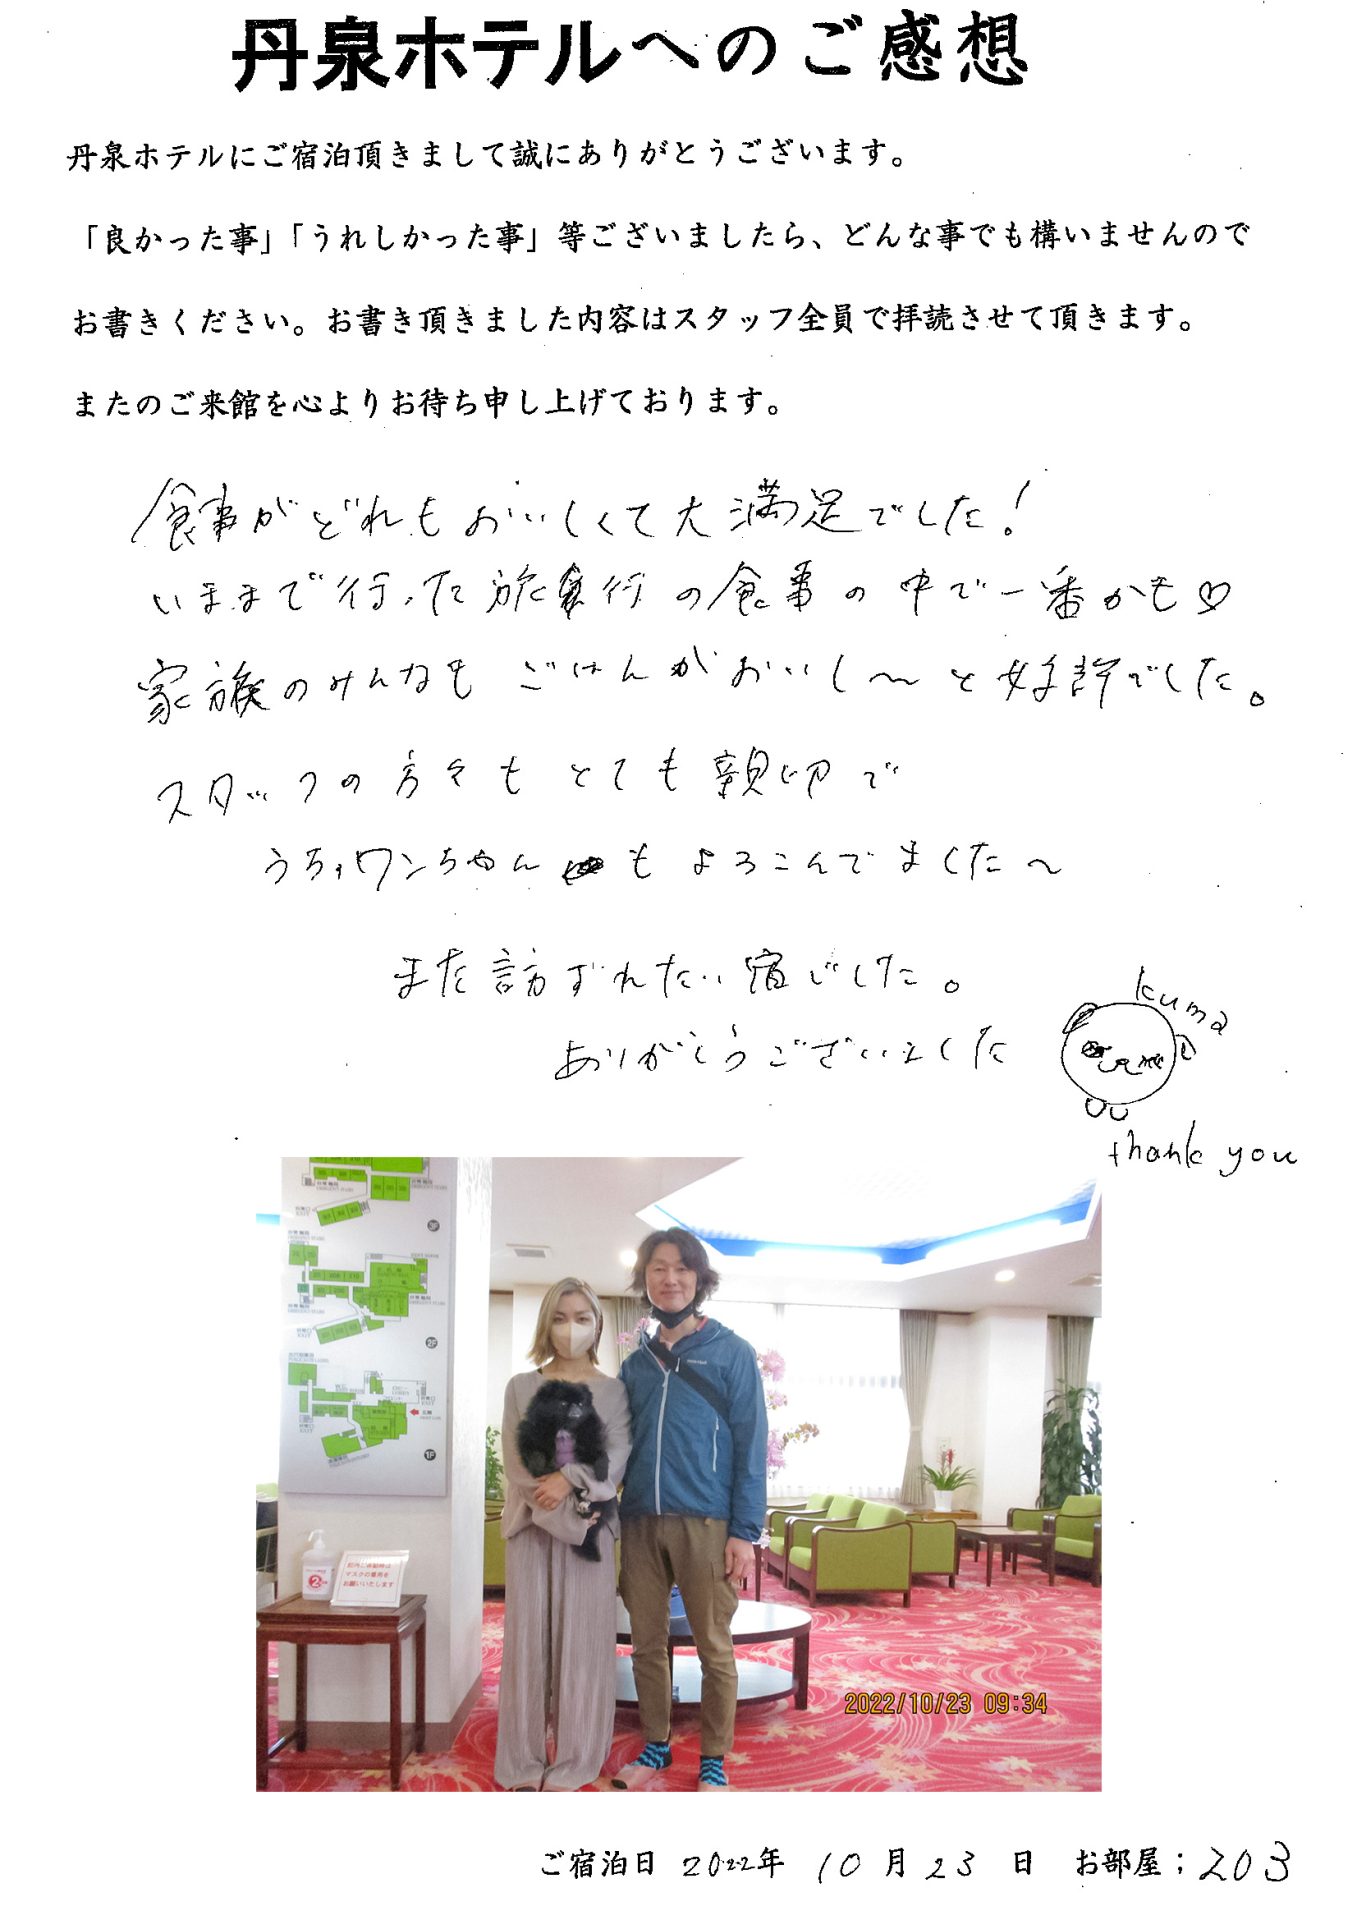 丹泉ホテルへのご感想
丹泉ホテルにご宿泊頂きまして誠にありがとうございます。
「良かった事」「うれしかった事」等ございましたら、どんな事でも構いませんので
お書きください。お書き頂きました内容はスタッフ全員で拝読させて頂きます。
またのご来館を心よりお待ち申し上げております。
食事がどれもおいしくて大満足でした!
いままで行った旅行の食事の中で一番かも♡
家族のみんなも ごはんがおいし〜と好評でした。
スタッフの方々もとても親切で
うちのワンちゃんもよろこんでました〜
また訪ずれたい宿でした。
ありがとうございました
kuma
thank you
3F
2F
1F
館内ご移動時は
マスクの着用を
お願いいたします
2022/10/23 09:34
ご宿泊日 2022年 10月23日 お部屋;203